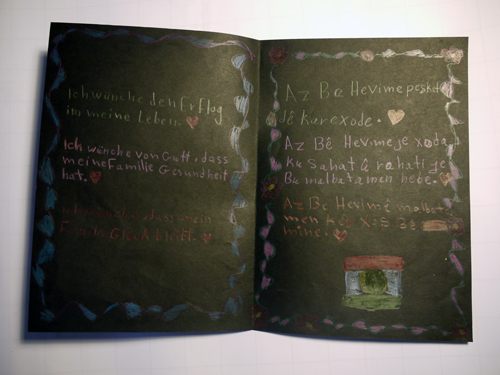 Ich wünche den Erflog
in meine Leben.
Ich wünche von Gutt, dass
meine Familie Gesundheit
hat.
dass mein
Familie Glück bleibt.
Az Ba Hevime peski
dê kar exode.
Az Bê Hevime je xoda
ku Sahat û rahati je
Ba malbata men hebe.
Az Ba Hevimê malba
men kê
mine.